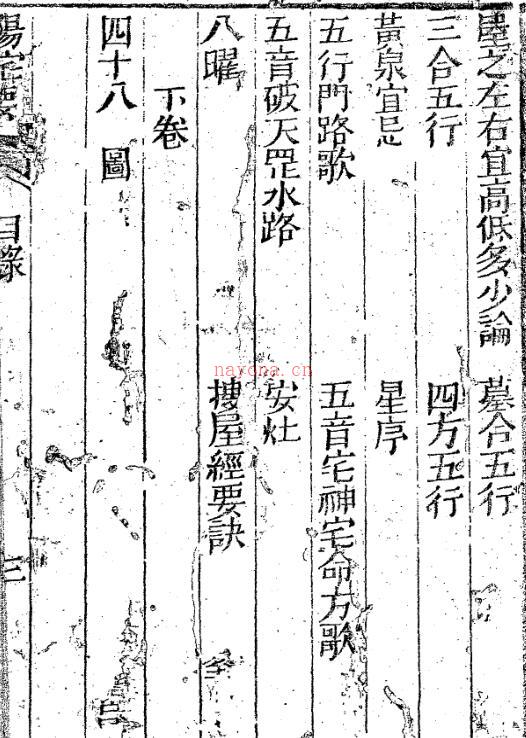 之左右宜高低多少論 墓合五行
三合五行 四方五行
黃泉宜忌 星序
五行門路歌 五音宅神宅命方歌
五音破天罡水路 安灶
八曜 搜屋經要訣
下卷
四十八圖
陽宅 目錄 三
nayona.cn